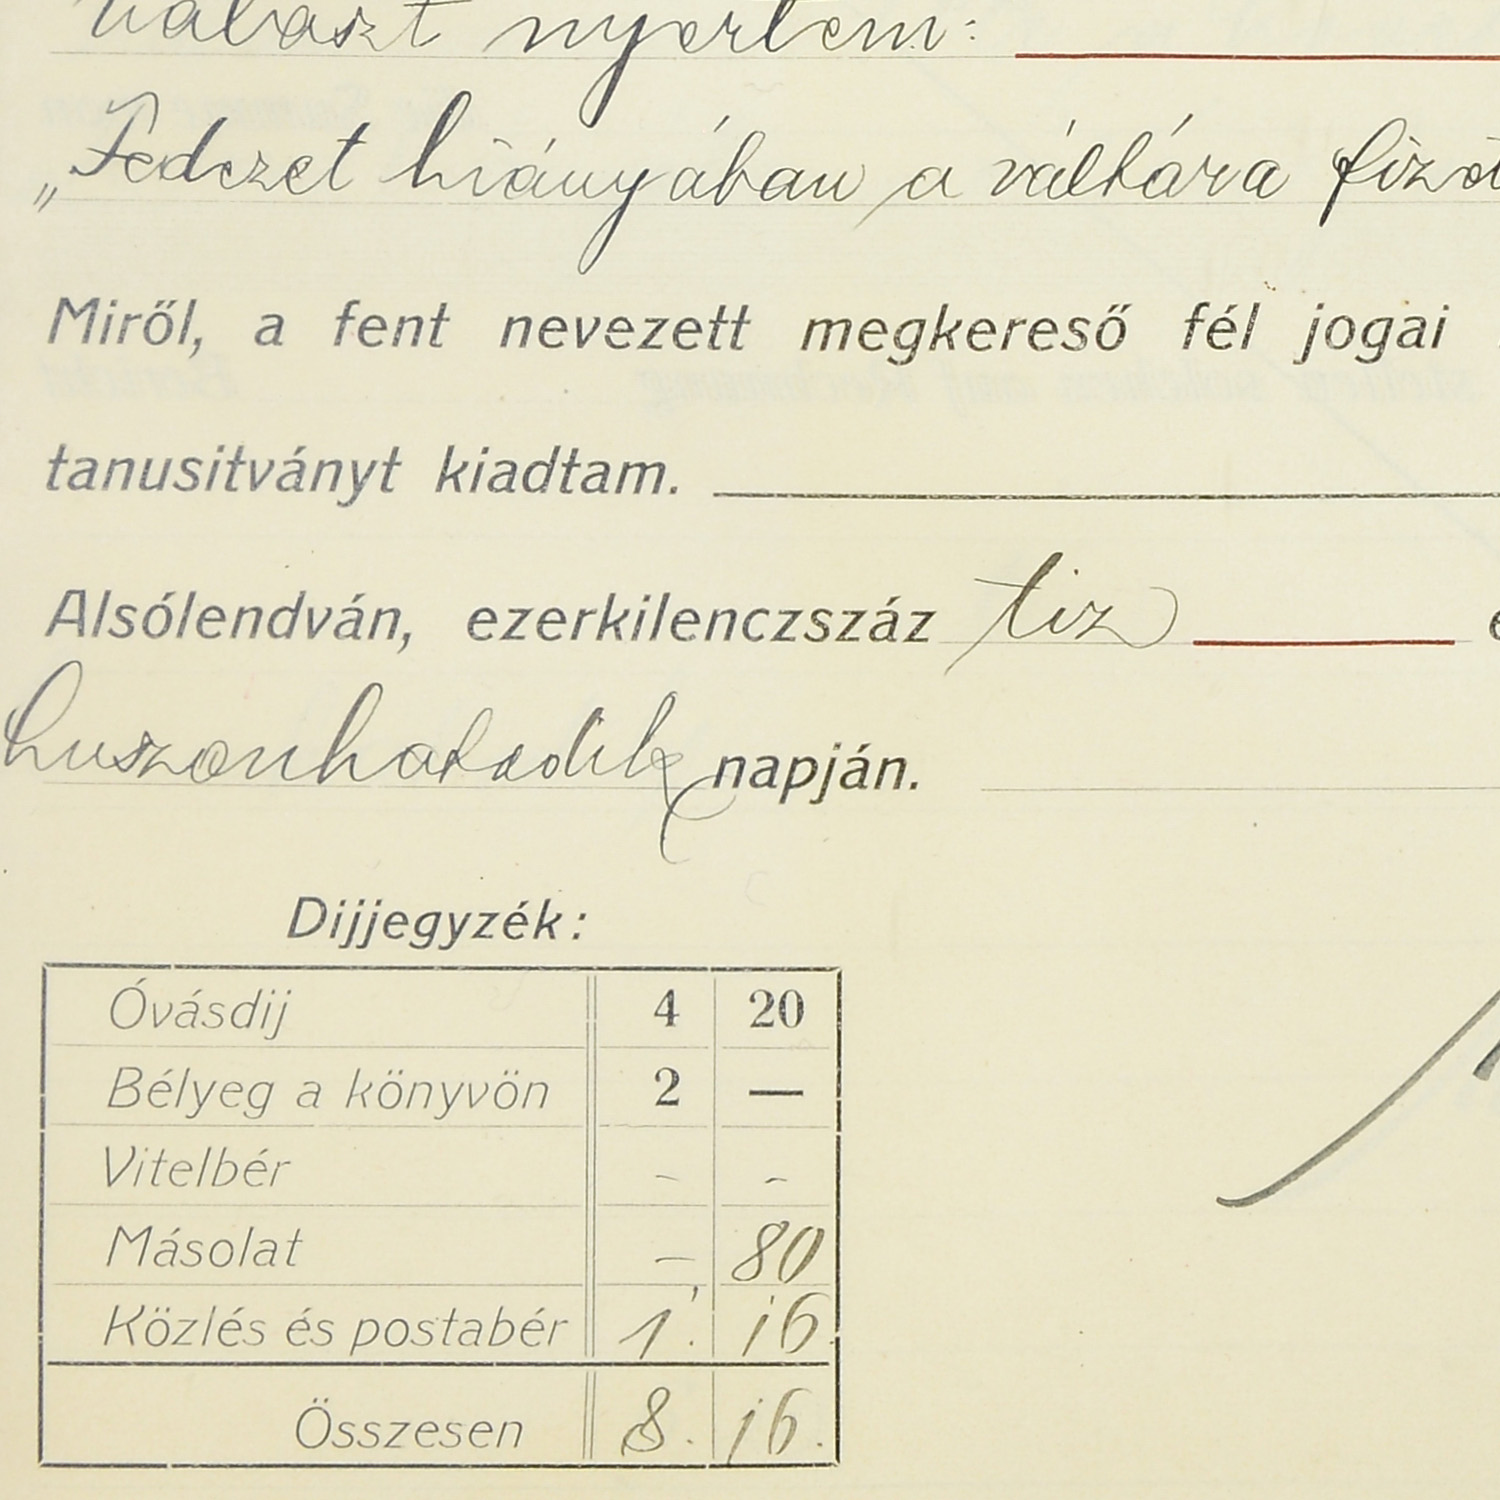 választ nyertem:
„Fedezet hiányában a váltóra
Miről, a fent nevezett megkereső fél jogai
tanusitványt kiadtam.
Alsólendván, ezerkilenczszáz tiz
huszonhatodik napján.
Dijjegyzék:
Óvásdij 4 20
Bélyeg a könyvön 2 —
Vitelbér - -
Másolat - 80
Közlés és postabér 1. 16
Összesen 8. 16.